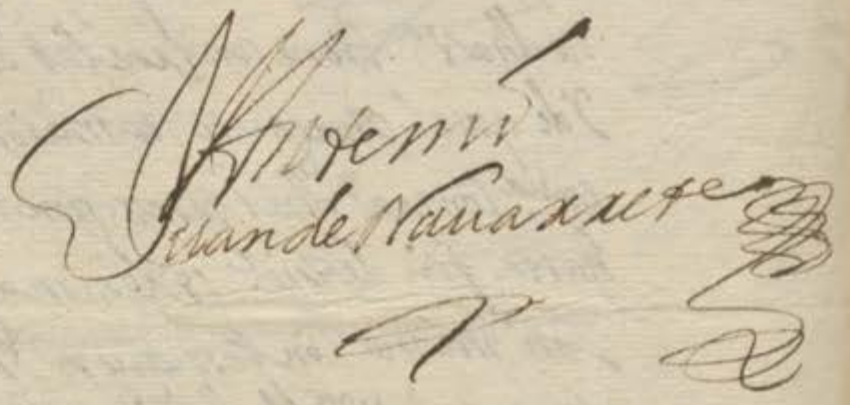 Antemi
Juan de Navarrete